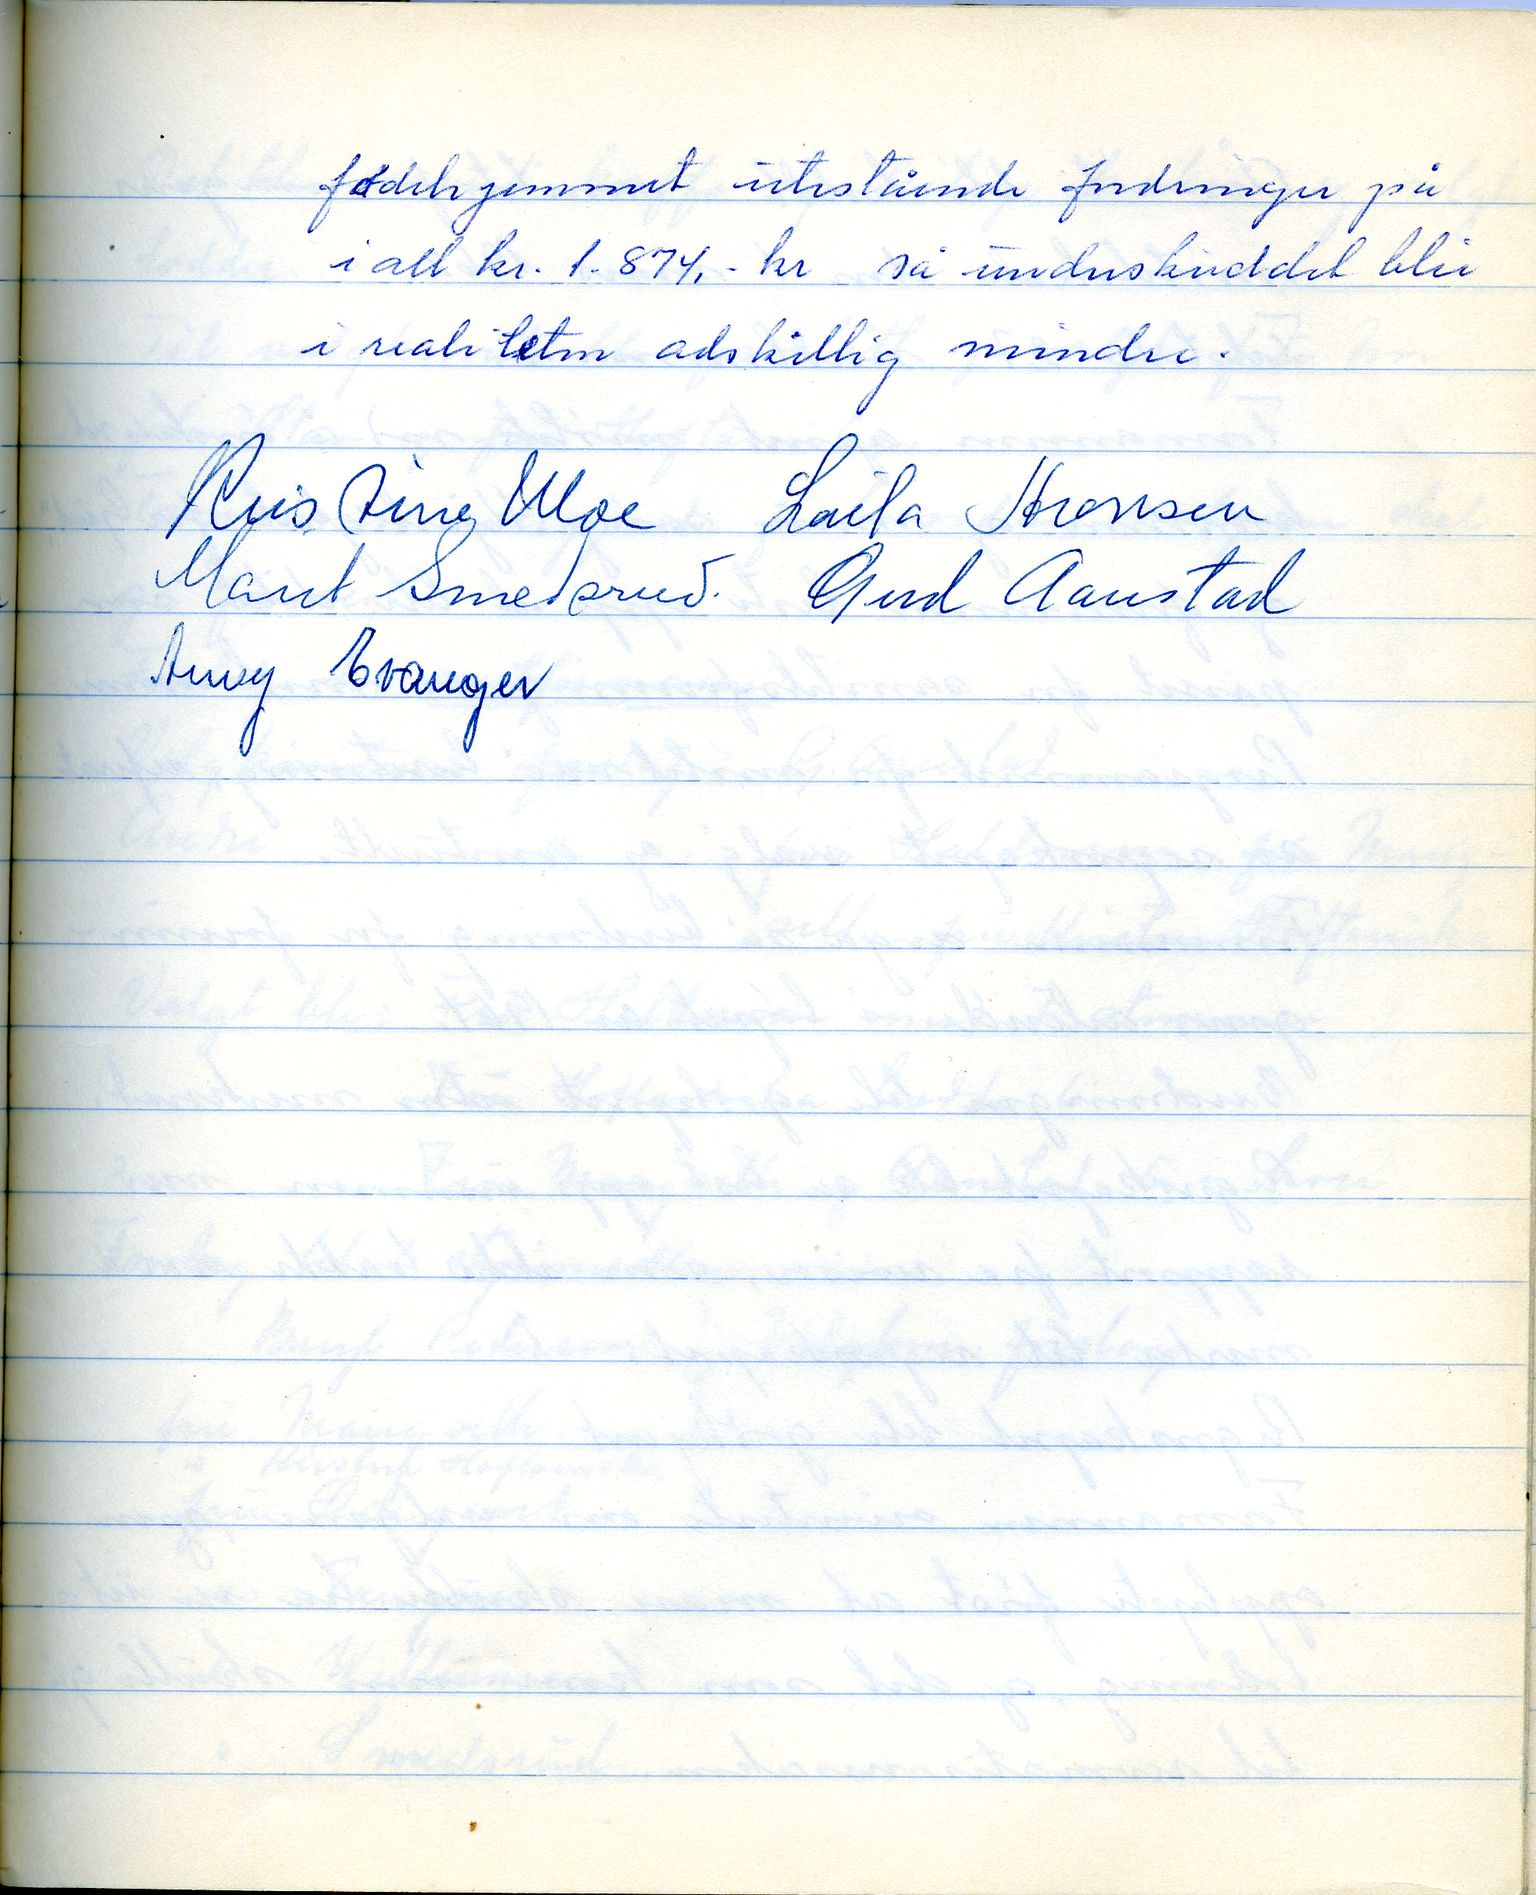 fødehjemmet utestående fordringer på
i alt kr. 1.874,- kr så underskuddet blir
i realiteten adskillig mindre.
Kristine Moe Laila Thoresen
Marit Smedsrud. Gud Aanstad
Anny Evanger